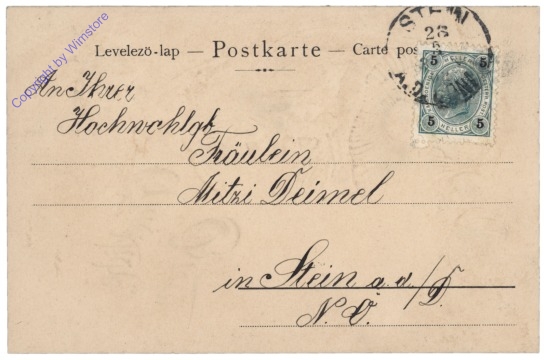 Levelezö-lap — Postkarte — Carte pos
STEIN
26
5 5
HELLER
5 5
Copyright by Wimstore
An Ihrer
Hochwohlgb
Fräulein
Mitzi Deimel
in Stein a. d./D.
N. Ö.